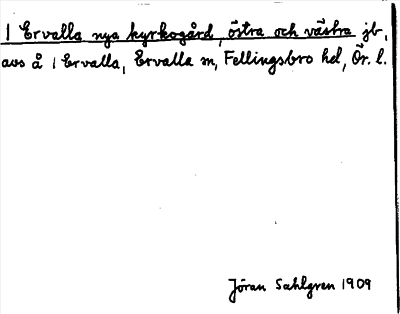 I Ervalla nya kyrkogård, östra och västra jb,
avs å 1 Ervalla, Ervalla sn, Fellingsbro hd, Ör. l.
Jöran Sahlgren 1909